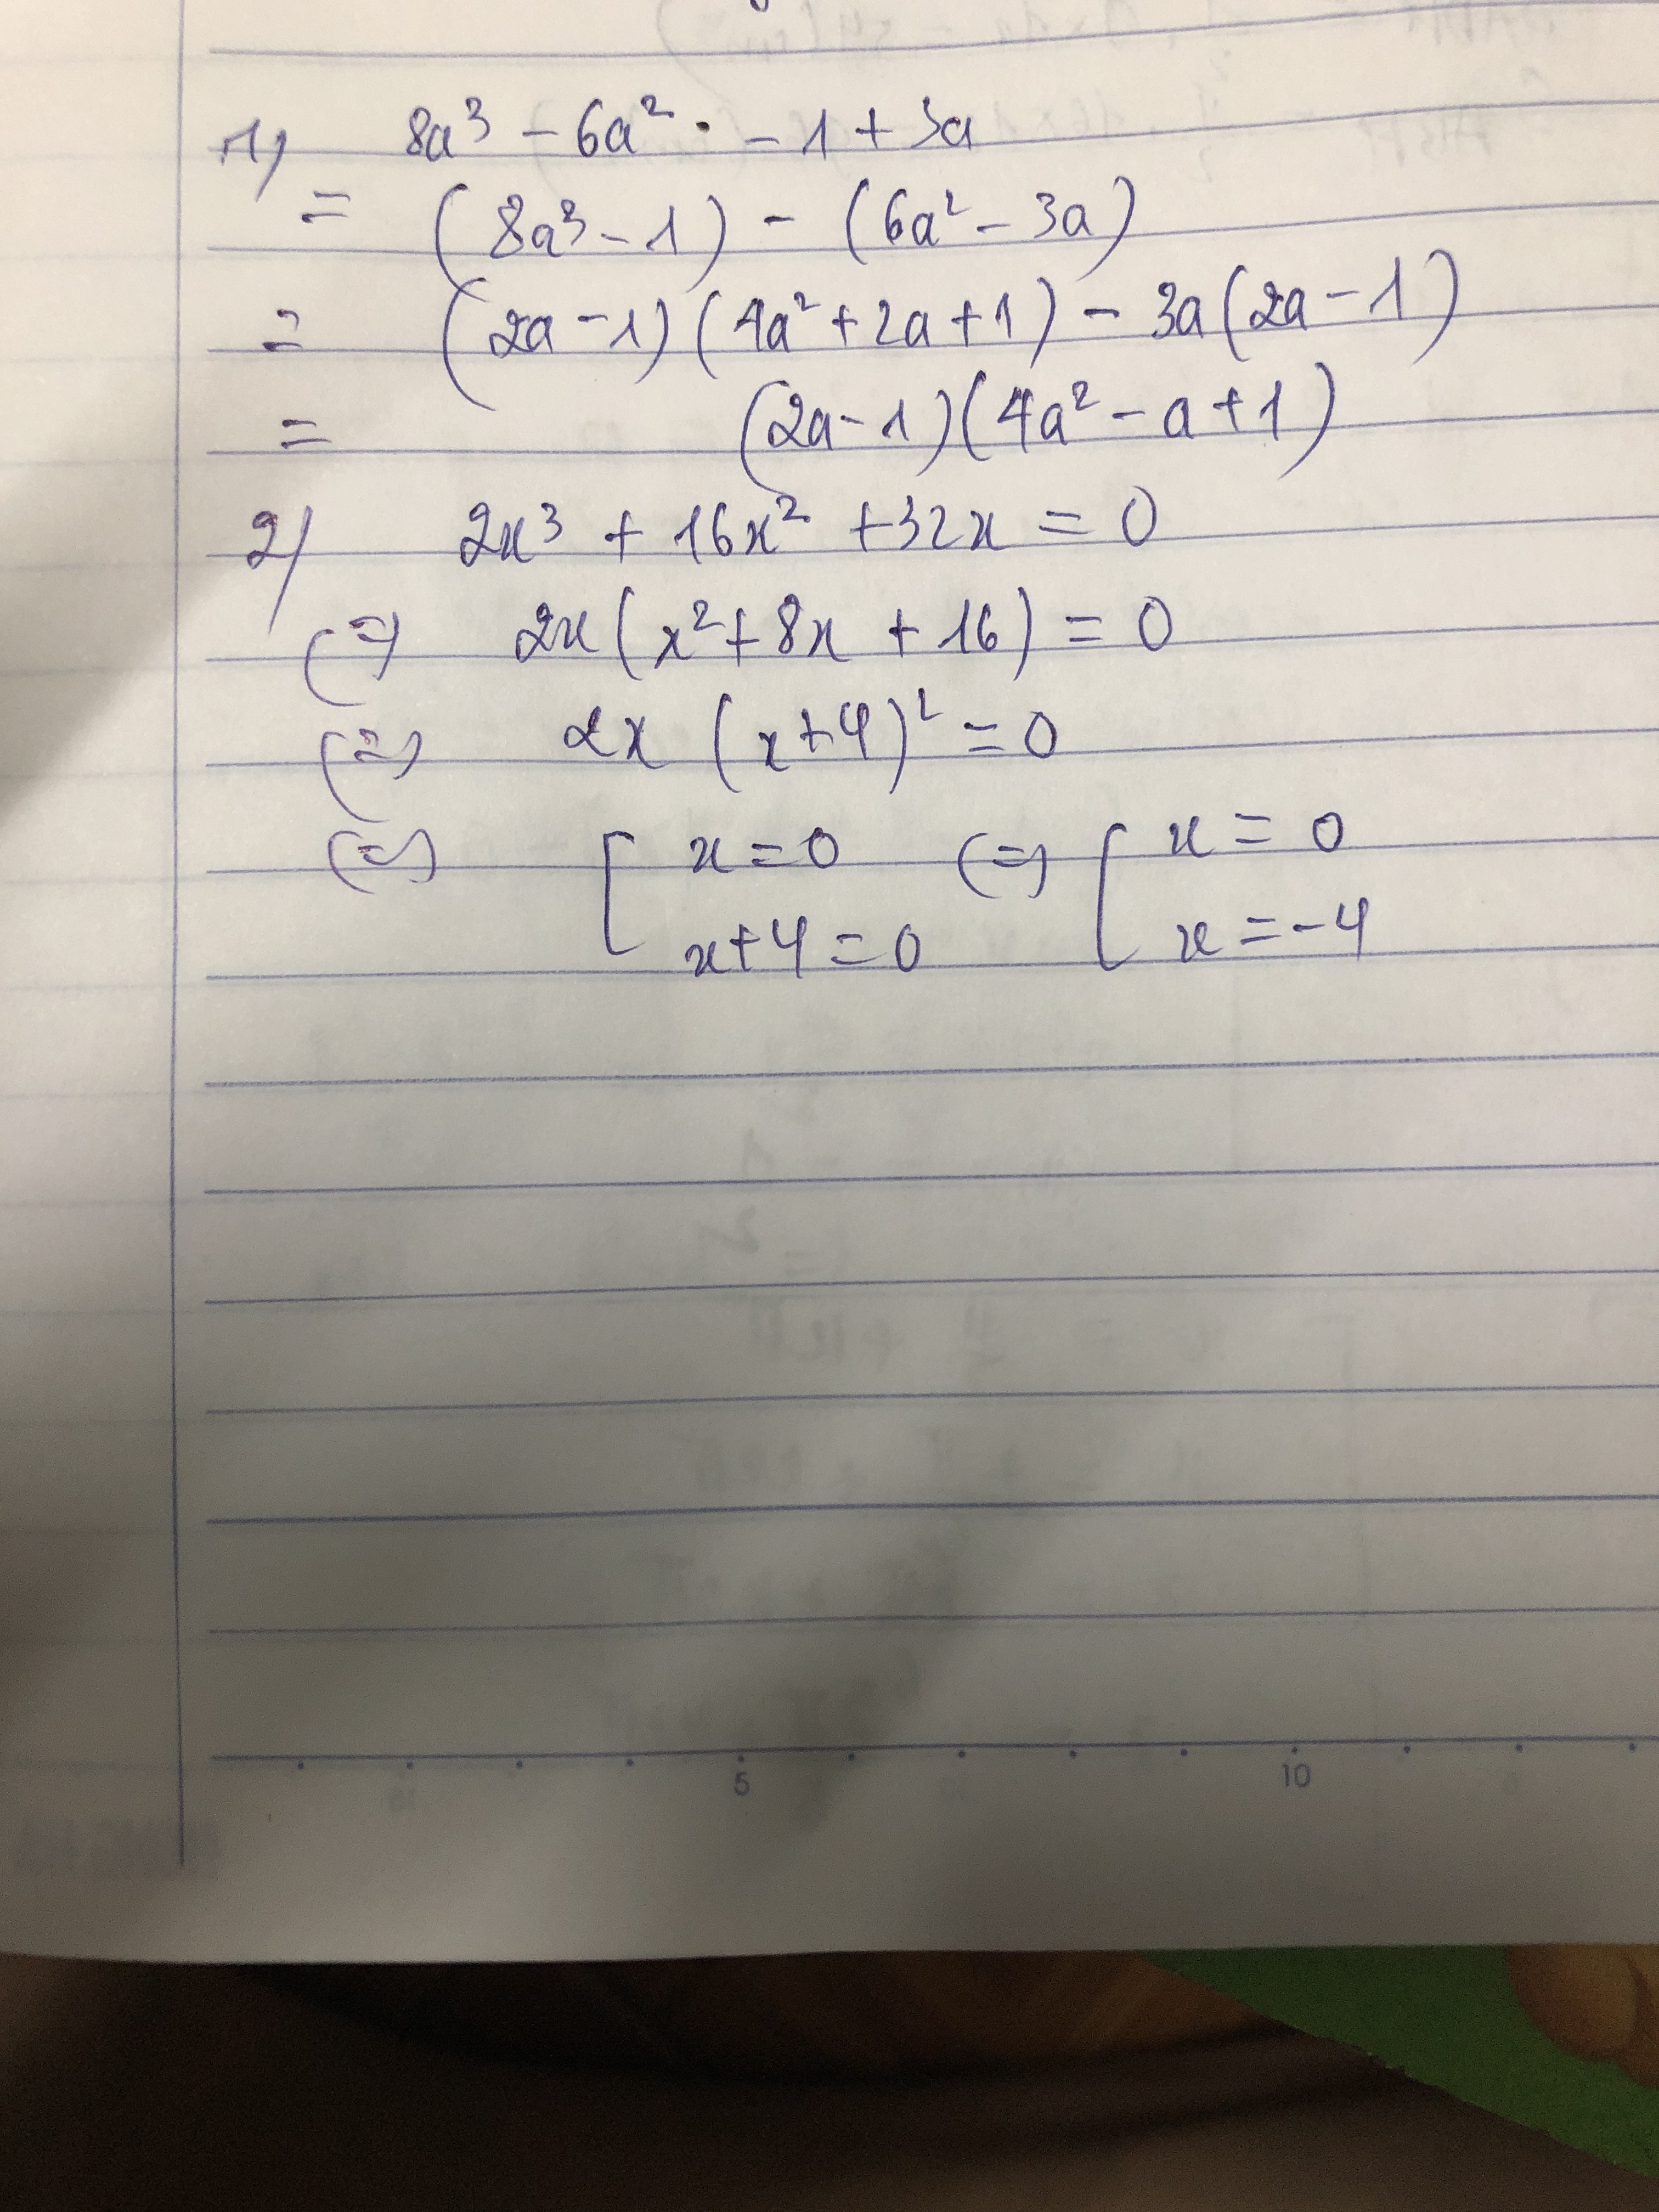 1) 8a³ - 6a² · - 1 + 3a
= (8a³ - 1) - (6a² - 3a)
= (2a - 1)(4a² + 2a + 1) - 3a(2a - 1)
= (2a - 1)(4a² - a + 1)
2) 2x³ + 16x² + 32x = 0
(=) 2x(x² + 8x + 16) = 0
(=) 2x (x + 4)² = 0
(=) [ x = 0 (=) [ x = 0
x + 4 = 0 x = -4
5 10